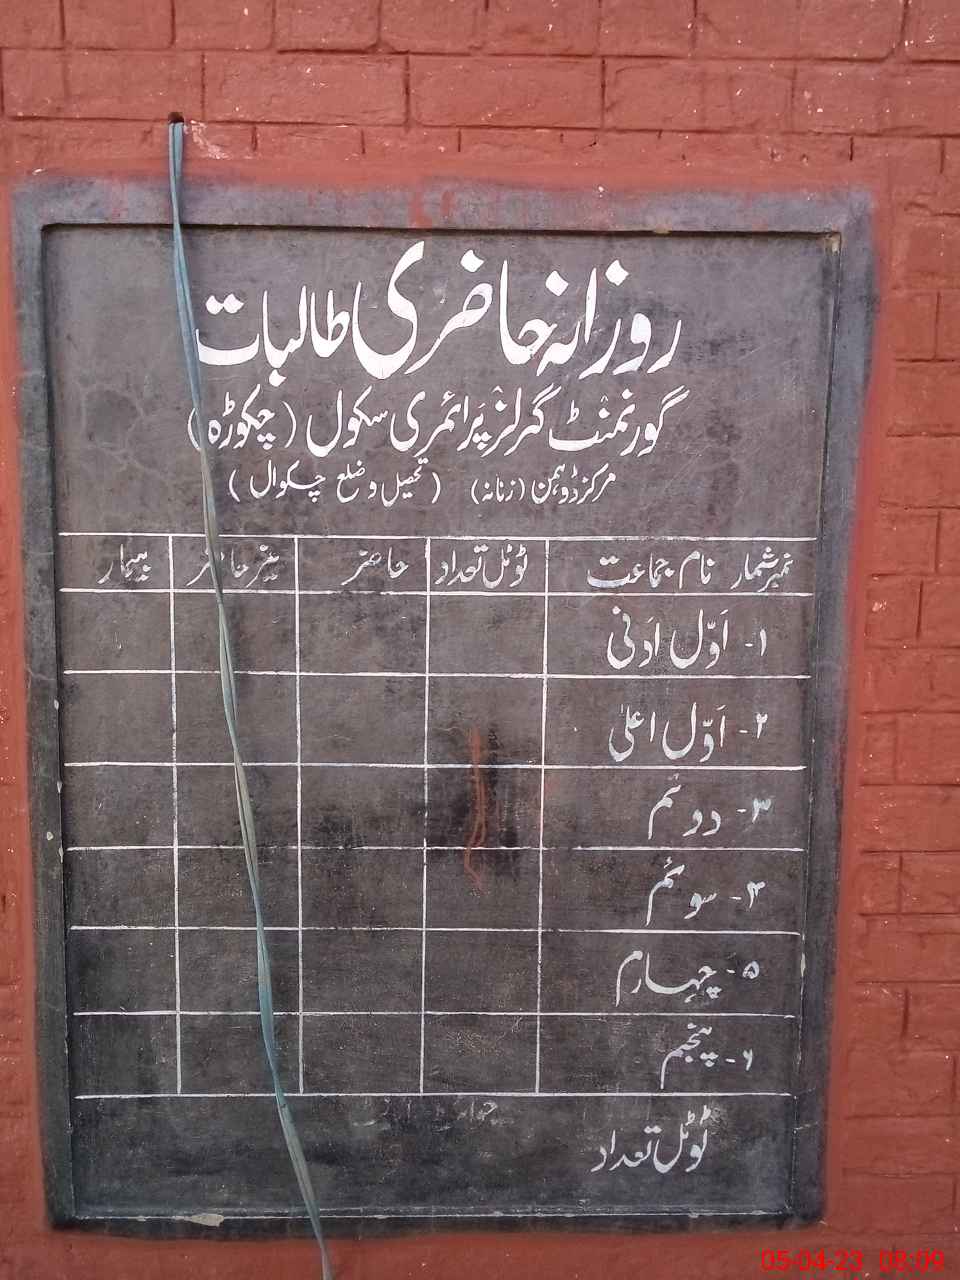 روزانہ حاضری طالبات
گورنمنٹ گرلز پرائمری سکول (چکوڑہ)
مرکز ڈوہمن (زنانہ) (تحصیل و ضلع چکوال)
نمبر شمار نام جماعت ٹوٹل تعداد حاضر غیر حاضر بیمار
۱- اَوّل ادَنی
۲- اَوّل اعلیٰ
۳- دوئم
۴- سوئم
۵- چہارم
۶- پنجم
ٹوٹل تعداد
05-04-23 08:09